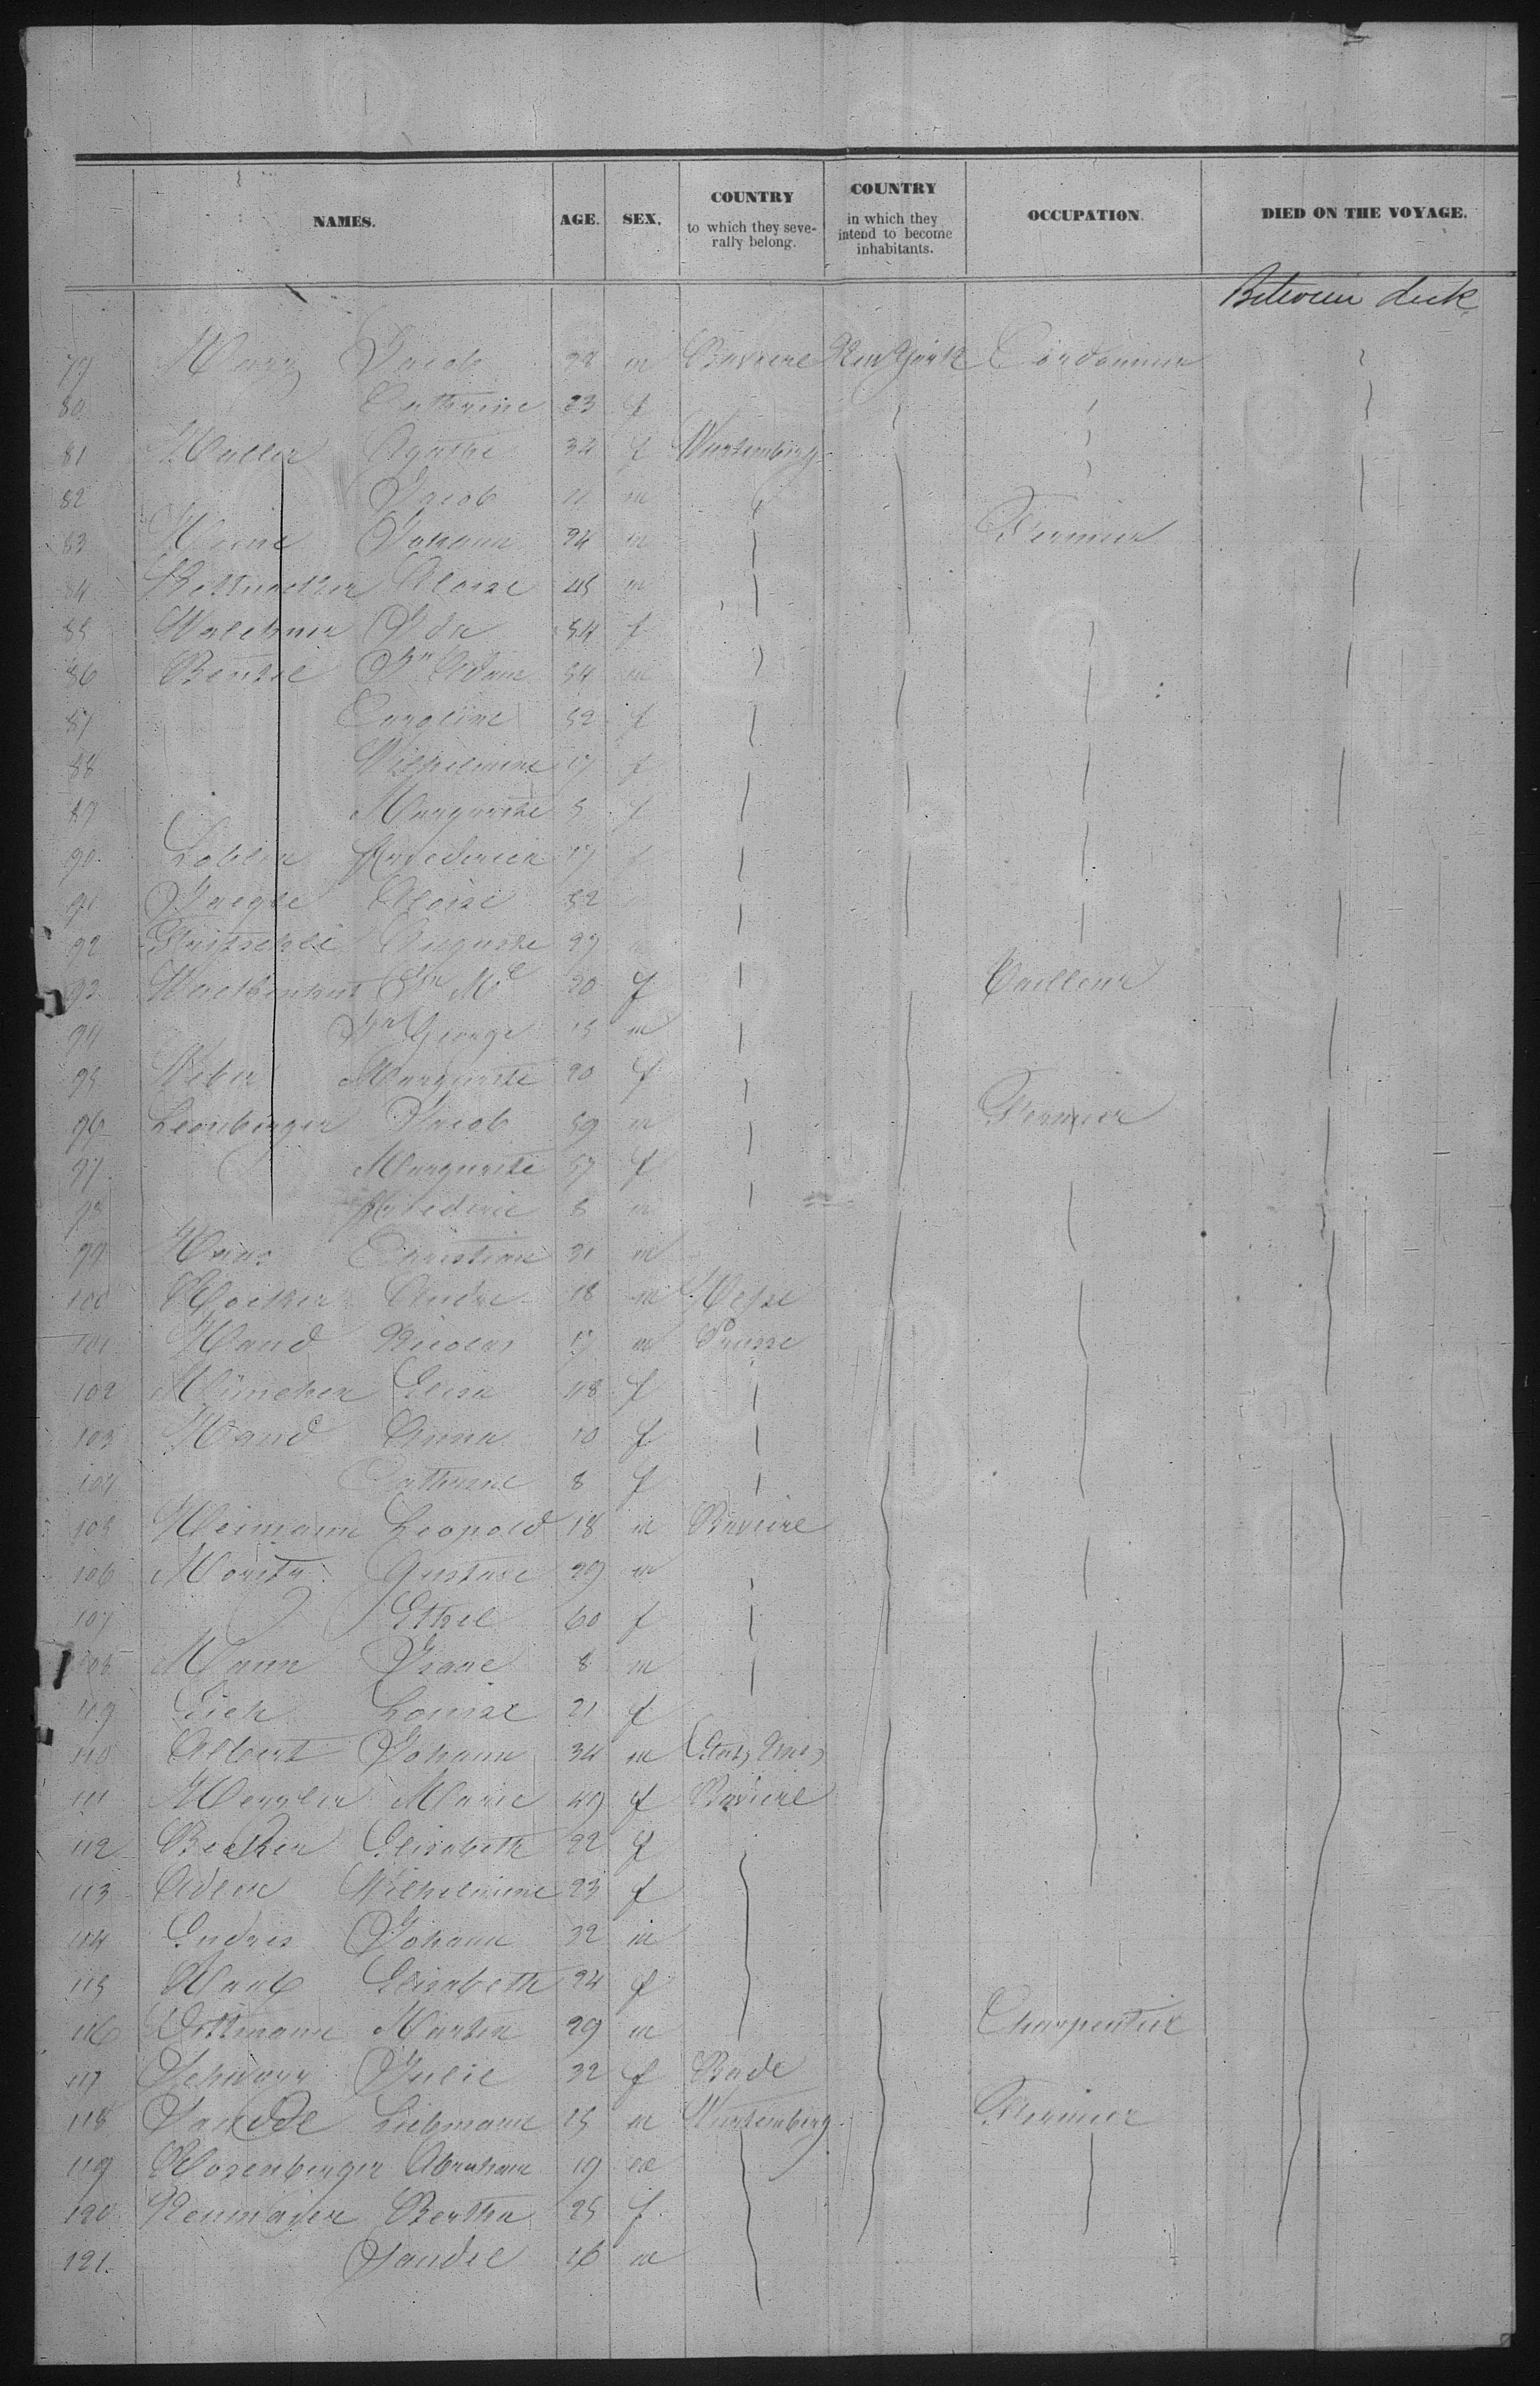 NAMES. AGE. SEX. COUNTRY to which they seve- rally belong. COUNTRY in which they intend to become inhabitants. OCCUPATION. DIED ON THE VOYAGE.
Between deck
79 Jacob 28 m Baviere New York Cordonnier
80 Catherine 23 f
81 Haller Agathe 34 f Wurtemberg
82 Jacob 11 m
83 Johann 24 m Fermier
84 Aloise 45 m
85 Ida 54 f
86 Jn Adam 54 m
87 Caroline 52 f
88 Wilhelmine 17 f
89 Marguerite 5 f
90 17
91 Jaegle Aloise 52
92 Auguste 27
93 Jn Me 20 f Tailleur
94 Jn George 15 m
95 Weber Marguerite 20 f
96 Leonberger Jacob 59 m Fermier
97 Marguerite 57 f
98 Frederic 8 m
99 Christian 31 m
100 Andre 18 m Hesse
101 Hand Nicolas 17 m Prusse
102 Müncher Elisa 48 f
103 Hand Anna 10 f
104 Catherine 8 f
105 Heimann Leopold 18 m Baviere
106 Moritz Gustave 29 m
107 Ethel 60 f
108 Mann Isaac 8 m
109 Eich Louise 21 f
110 Albert Johann 34 m Etats Unis
111 Marie 49 f Baviere
112 Becker Elisabeth 22 f
113 Wilhelmine 23 f
114 Endres Johann 32 m
115 Elisabeth 24 f
116 Martin 29 m Charpentier
117 Schwarz Julie 32 f Bade
118 Liebmann 15 m Wurtemberg Fermier
119 Rosenberger Abraham 19 m
120 Neumaier Bertha 25 f
121. 16 m